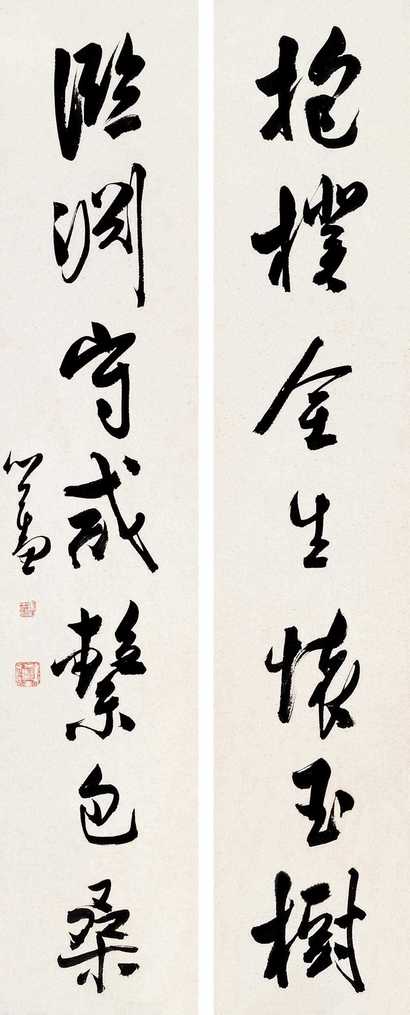 抱樸全生懷玉樹
臨淵守戒繫包桑
心畬